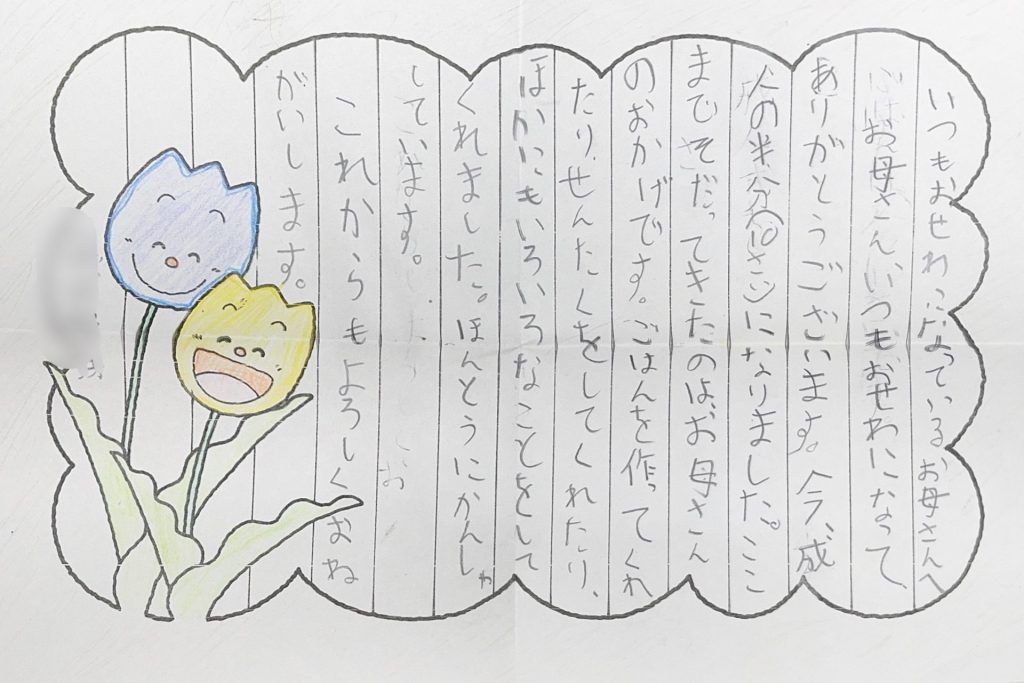 いつもおせわになっているお母さんへ
お母さん、いつもおせわになって、
ありがとうございます。今、成
人の半分(10さい)になりました。ここ
までそだってきたのはお母さん
のおかげです。ごはんを作ってくれ
たり、せんたくをしてくれたり、
ほかにもいろいろなことをして
くれました。ほんとうにかんしゃ
しています。
これからもよろしくおね
がいします。